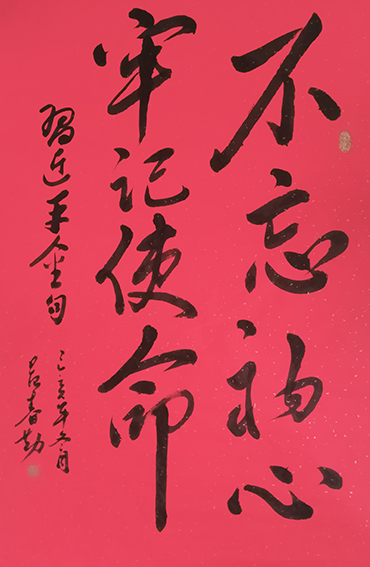 不忘初心
牢记使命
习近平金句
己亥年冬月
吕春勤